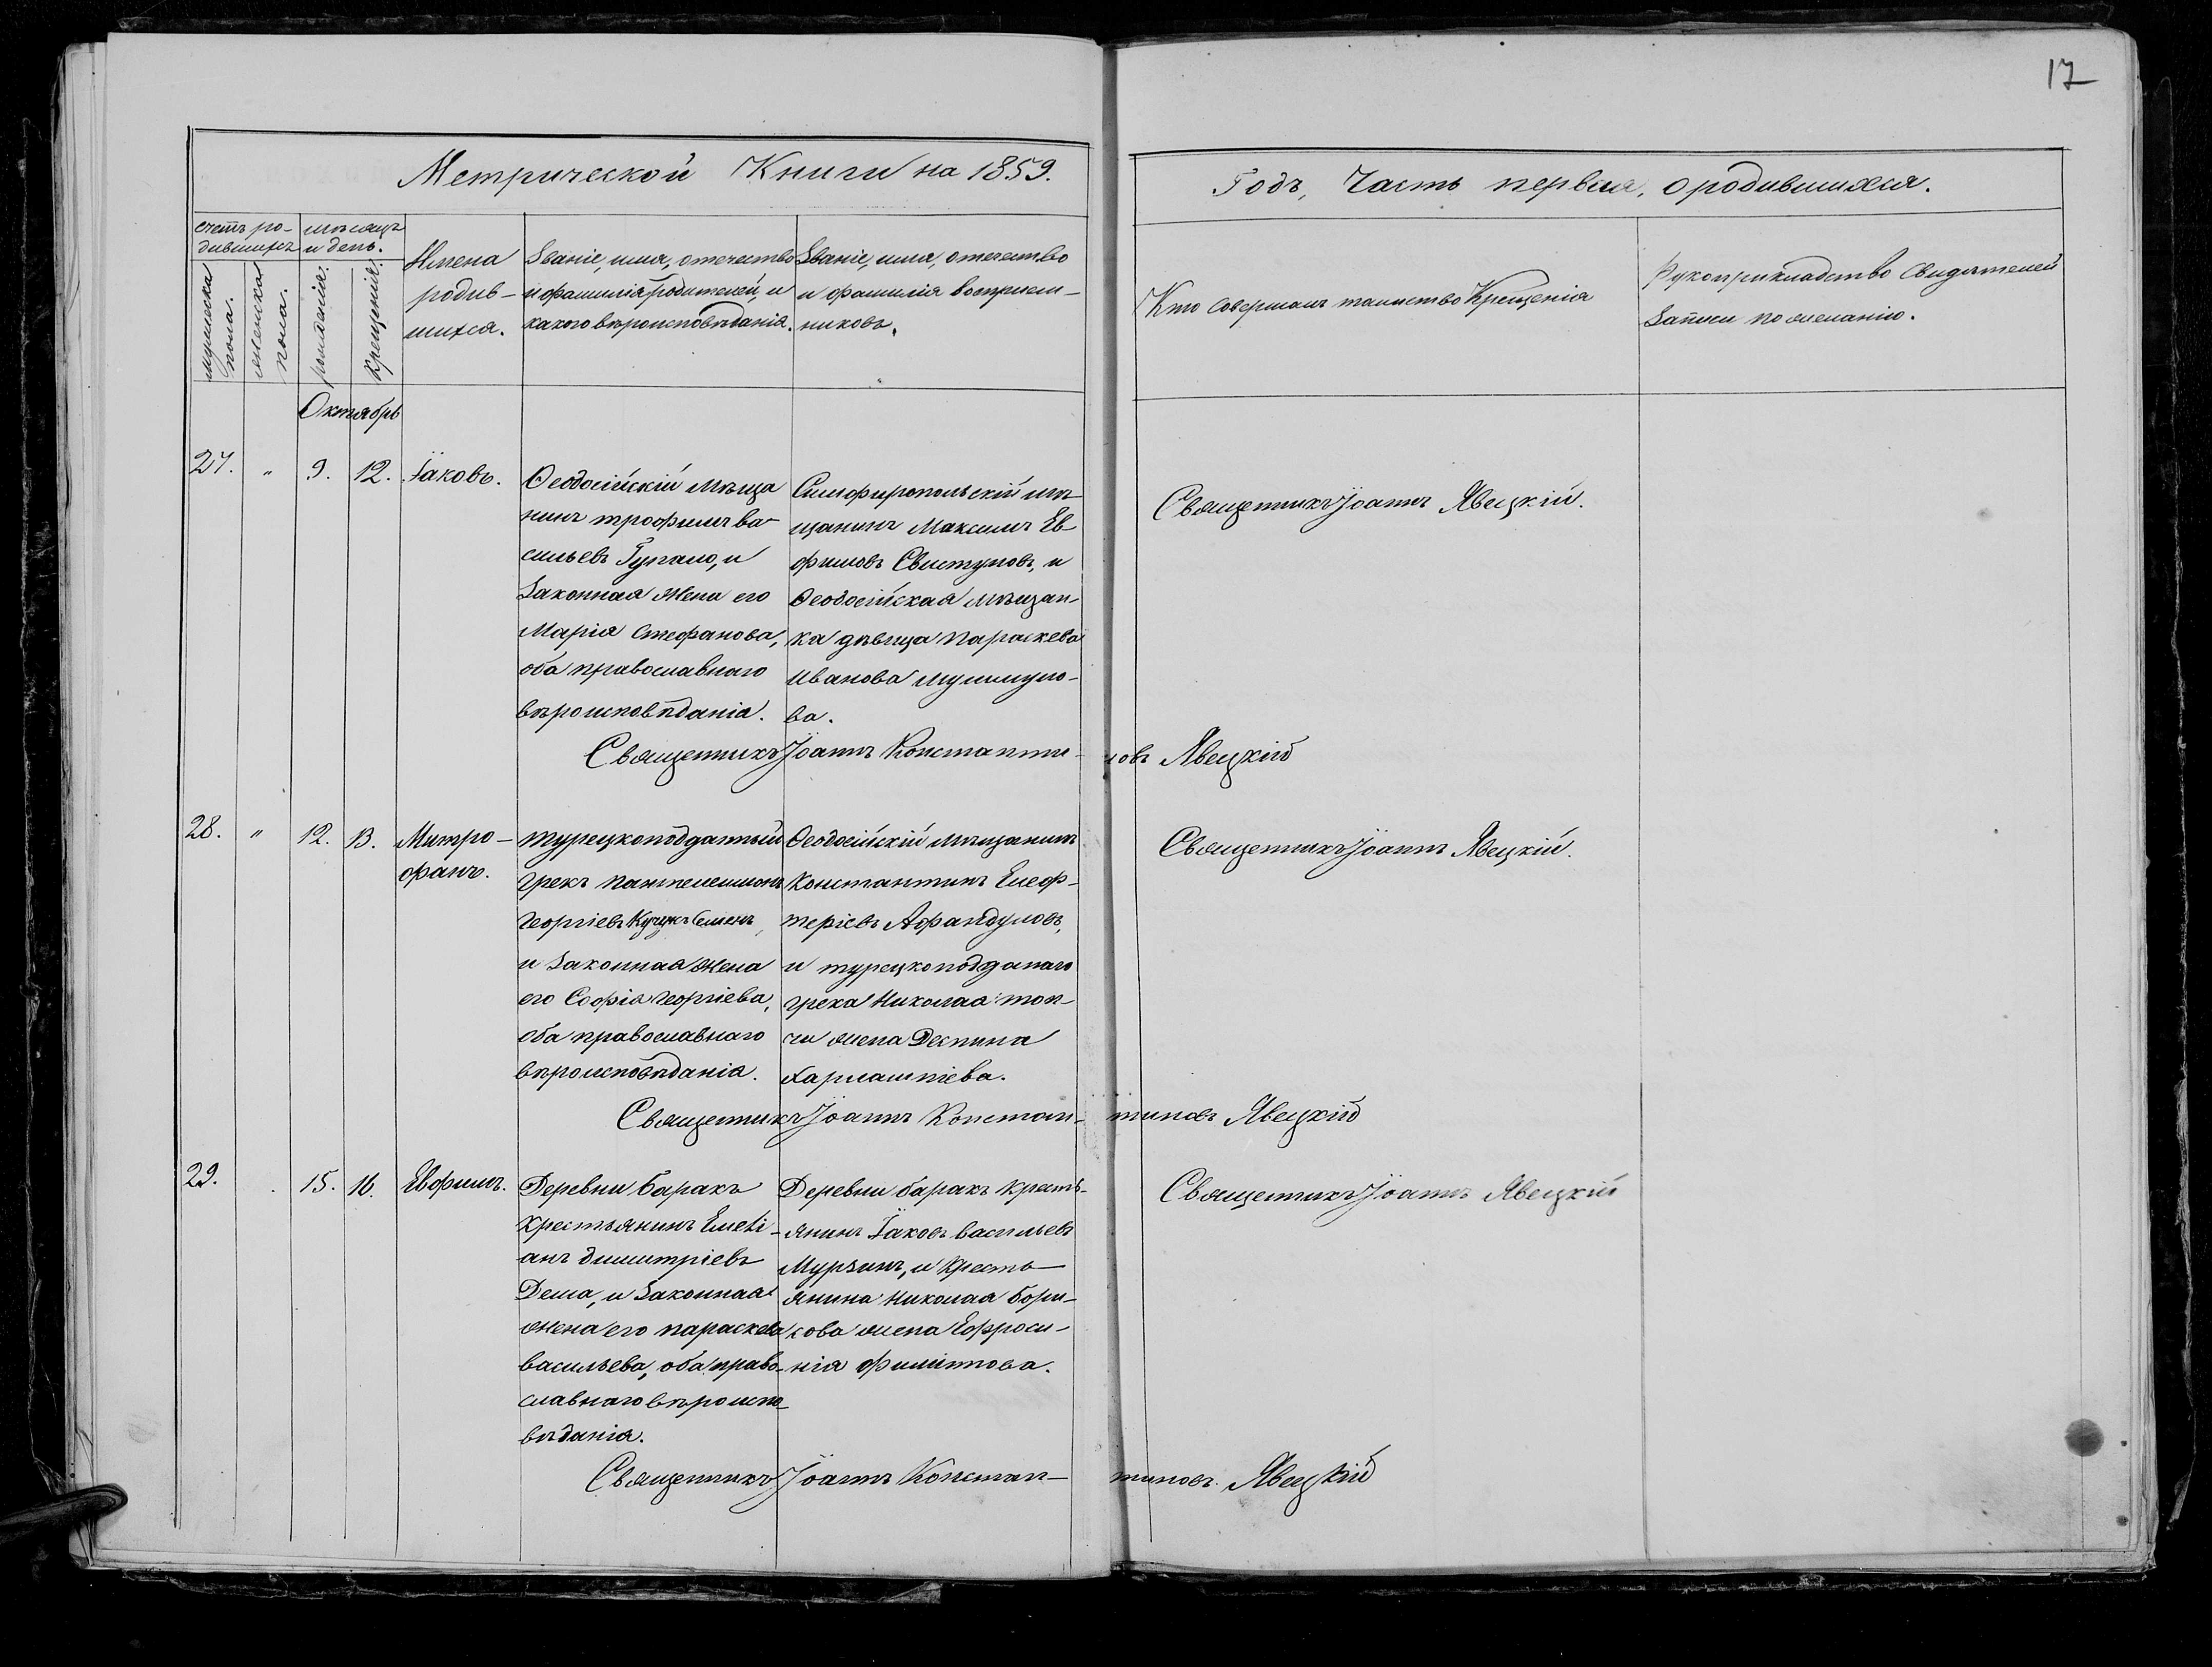 17
Метрической Книги на 1859.
Годъ, Часть первая, о родившихся.
счетъ ро-
дившихъ
мѣсяцъ
и день.
мужеска
пола.
женска
пола.
рожденія.
крещенія.
Имена
родив-
шихся.
Званіе, имя, отечество
и фамилія родителей, и
какого вѣроисповѣданія.
Званіе, имя, отечество
и фамилія восприем-
никовъ.
Кто совершалъ таинство Крещенія
Рукоприкладство свидѣтелей
записи по желанію.
Октябрь
27. " 9. 12. Іаковъ.
Ѳеодосійскій мѣща
нинъ трофимъ ва-
сильевъ Гупало, и
законная жена его
Марія Стефанова,
оба православнаго
вѣроисповѣданія.
Симферопольскій мѣ-
щанинъ Максимъ Ев
фимовъ Свистуновъ, и
Ѳеодосійская мѣщан-
ка дѣвица параскева
Иванова
ва.
Священникъ Іоаннъ Явецкій.
Священникъ Іоаннъ Константи- новъ Явецкій
28. " 12. 13. Митро-
фанъ.
турецкоподданный
грекъ пантелеимонъ
Георгіевъ Кучукъ Семенъ,
и законная жена
его Софія Георгіева,
оба православнаго
вѣроисповѣданія.
Ѳеодосійскій мѣщанинъ
Константинъ Елеф-
теріевъ Афандуловъ,
и турецкоподданаго
грека Николая топ-
чи жена Деспина
Харлампіева.
Священникъ Іоаннъ Явецкій.
Священникъ Іоаннъ Констан- тиновъ Явецкій
29. 15. 16. Евфимъ.
Деревни баракъ
крестьянинъ Емеli-
анъ димитріевъ
Дема, и законная
жена его параскева
васильева, оба право-
славнаго вѣроиспо-
вѣданія.
Деревни баракъ кресть-
янинъ Іаковъ васильевъ
Мурзинъ, и кресть-
янина Николая бори-
сова жена Ефроси-
нія филиппова.
Священникъ Іоаннъ Явецкій
Священникъ Іоаннъ Констан- тиновъ. Явецкій